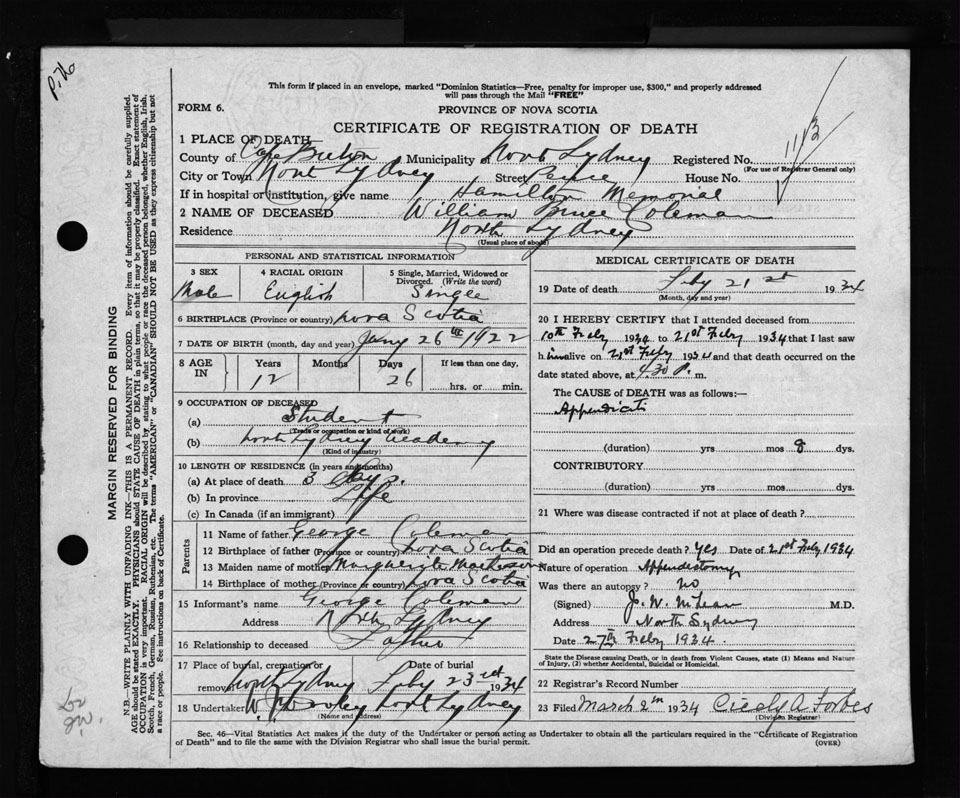 This form if placed in an envelope, marked "Dominion Statistics—Free, penalty for improper use, $300," and properly addressed
will pass through the Mail "FREE"
FORM 6.
PROVINCE OF NOVA SCOTIA
CERTIFICATE OF REGISTRATION OF DEATH
1 PLACE OF DEATH
County of Cape Breton Municipality of North Sydney Registered No.
(For use of Registrar General only)
1113
City or Town North Sydney Street Peirce House No.
If in hospital or institution, give name Hamilton Memorial
2 NAME OF DECEASED William Bruce Coleman
Residence North Sydney
(Usual place of abode)
PERSONAL AND STATISTICAL INFORMATION
3 SEX Male
4 RACIAL ORIGIN English
5 Single, Married, Widowed or Divorced. (Write the word) Single
6 BIRTHPLACE (Province or country) Nova Scotia
7 DATE OF BIRTH (month, day and year) Jany 26th 1922
8 AGE IN Years 12 Months Days 26 If less than one day, hrs. or min.
9 OCCUPATION OF DECEASED
(a) Student
(Trade or occupation or kind of work)
(b) North Sydney Academy
(Kind of industry)
10 LENGTH OF RESIDENCE (in years and months)
(a) At place of death 3 days.
(b) In province Life
(c) In Canada (if an immigrant)
Parents
11 Name of father George Coleman
12 Birthplace of father (Province or country) Nova Scotia
13 Maiden name of mother Marguerite
14 Birthplace of mother (Province or country) Nova Scotia
15 Informant's name George Coleman
Address North Sydney
16 Relationship to deceased Father
17 Place of burial, cremation or removal North Sydney Date of burial Feby 23rd 1934
18 Undertaker W. North Sydney
(Name and address)
MEDICAL CERTIFICATE OF DEATH
19 Date of death Feby 21st 1934
(Month, day and year)
20 I HEREBY CERTIFY that I attended deceased from
10th Feby 1934 to 21st Feby 1934 that I last saw
him alive on 21st Feby 1934 and that death occurred on the
date stated above, at 4.30 P. m.
The CAUSE OF DEATH was as follows:—
Appendicitis
(duration) yrs mos 8 dys.
CONTRIBUTORY
(duration) yrs mos dys.
21 Where was disease contracted if not at place of death?
Did an operation precede death? Yes Date of 21st Feby 1934
Nature of operation Appendectomy
Was there an autopsy? No
(Signed) J. W. McLean M.D.
Address North Sydney
Date 27th Feby 1934.
State the Disease causing Death, or in death from Violent Causes, state (1) Means and Nature
of Injury, (2) whether Accidental, Suicidal or Homicidal.
22 Registrar's Record Number
23 Filed March 2nd 1934 Cicely A Forbes
(Division Registrar)
Sec. 46—Vital Statistics Act makes it the duty of the Undertaker or person acting as Undertaker to obtain all the particulars required in the "Certificate of Registration
of Death" and to file the same with the Division Registrar who shall issue the burial permit.
(OVER)
MARGIN RESERVED FOR BINDING
N.B.—WRITE PLAINLY WITH UNFADING INK—THIS IS A PERMANENT RECORD. Every item of information should be carefully supplied.
AGE should be stated EXACTLY. PHYSICIANS should STATE CAUSE OF DEATH in plain terms, so that it may be properly classified. Exact statement of
OCCUPATION is very important. RACIAL ORIGIN will be described by stating to what people or race the deceased person belonged, whether English, Irish,
Scotch, French, German, Russian, Ruthenian, etc. The terms "AMERICAN" or "CANADIAN" SHOULD NOT BE USED as they express citizenship but not
a race or people. See instructions on back of Certificate.